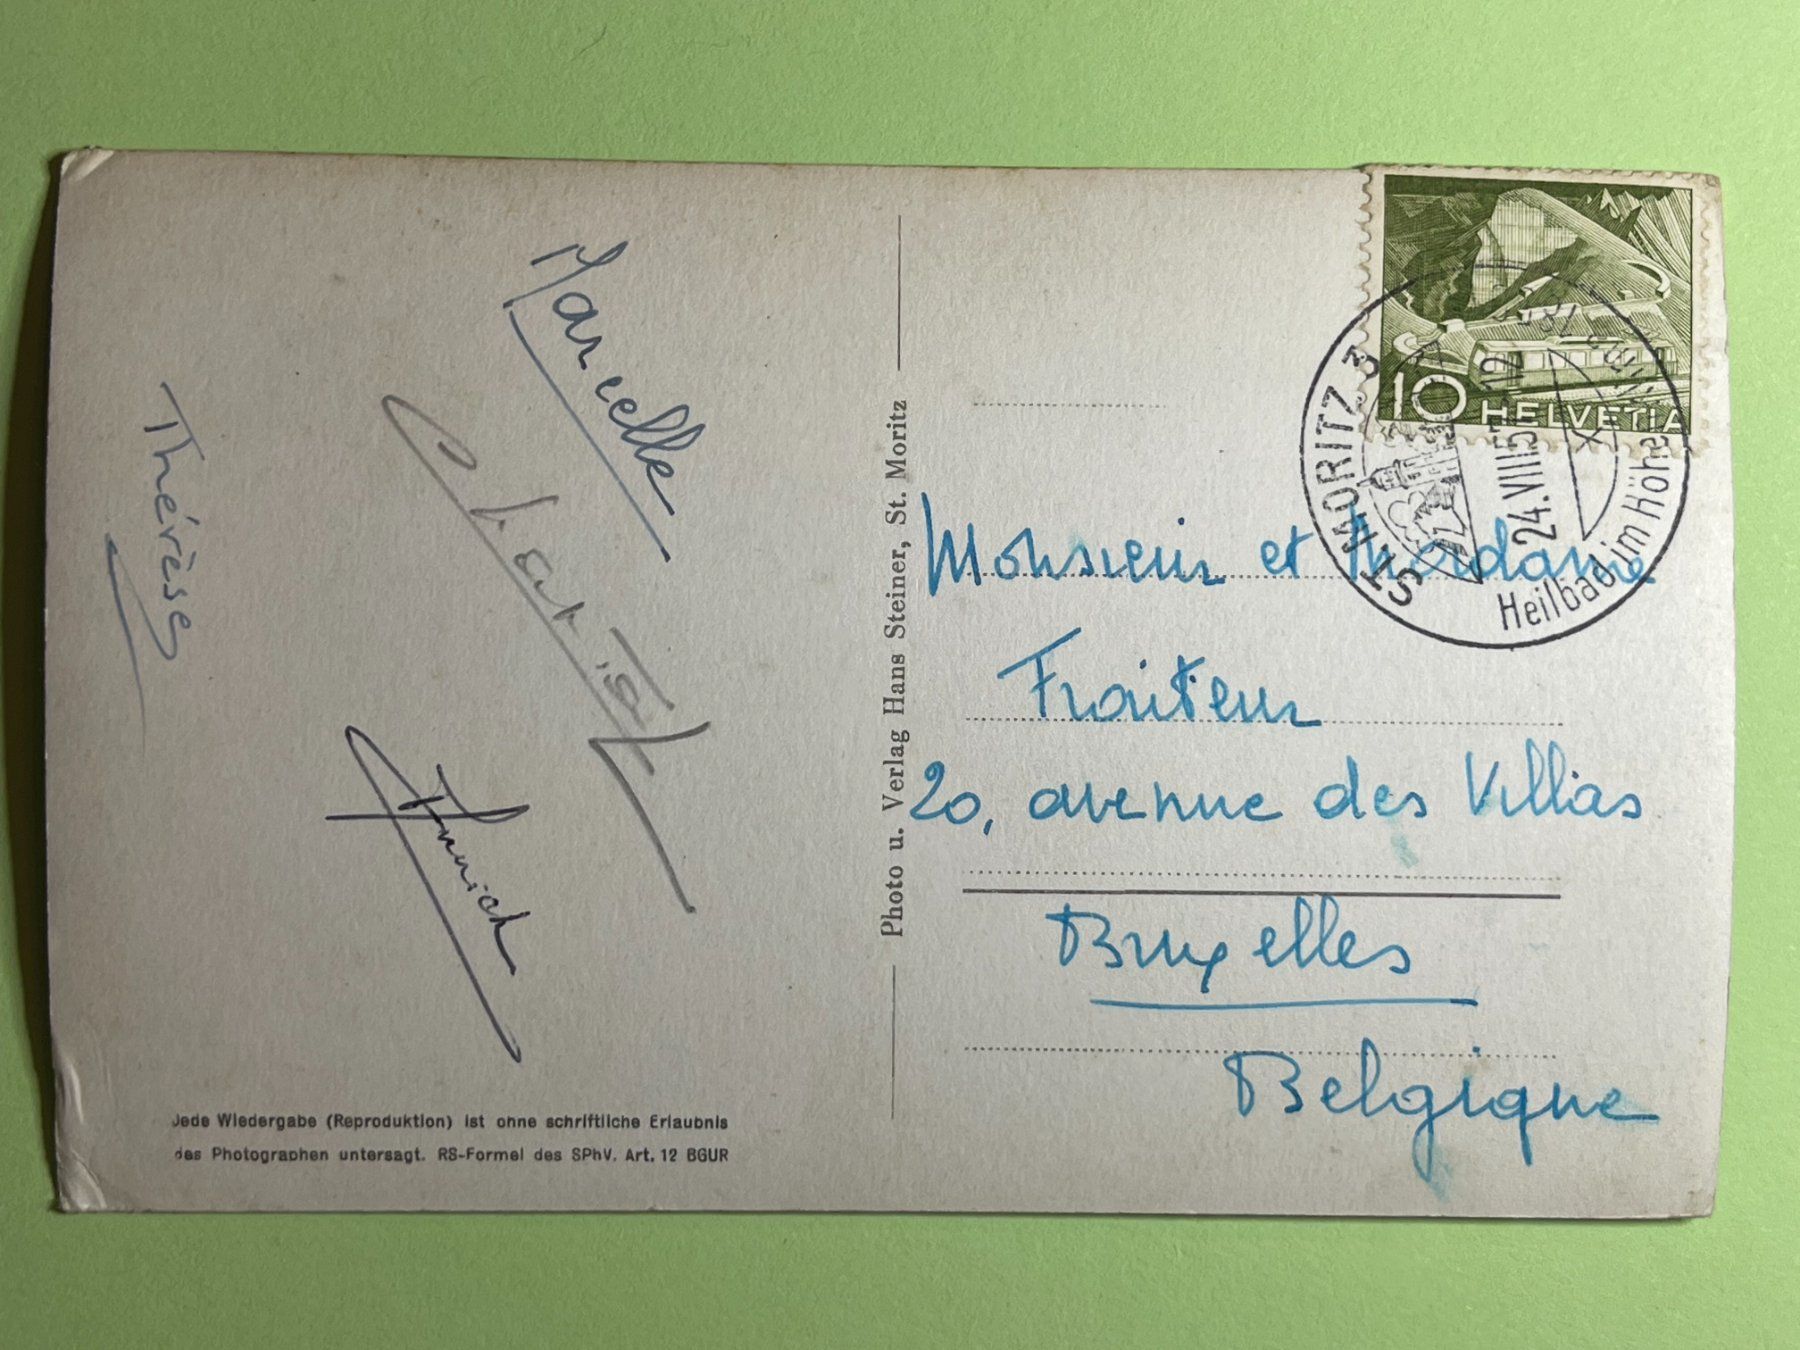 Marcelle
Christ
Thérèse
Annick
Jede Wiedergabe (Reproduktion) ist ohne schriftliche Erlaubnis
des Photographen untersagt. RS-Formel des SPhV. Art. 12 BGUR
Photo u. Verlag Hans Steiner, St. Moritz
10 HELVETIA
ST. MORITZ 3
24.VIII 57.-12
Heilbad im Höhenklima
Monsieur et Madame
Fraiteur
20, avenue des Villas
Bruxelles
Belgique